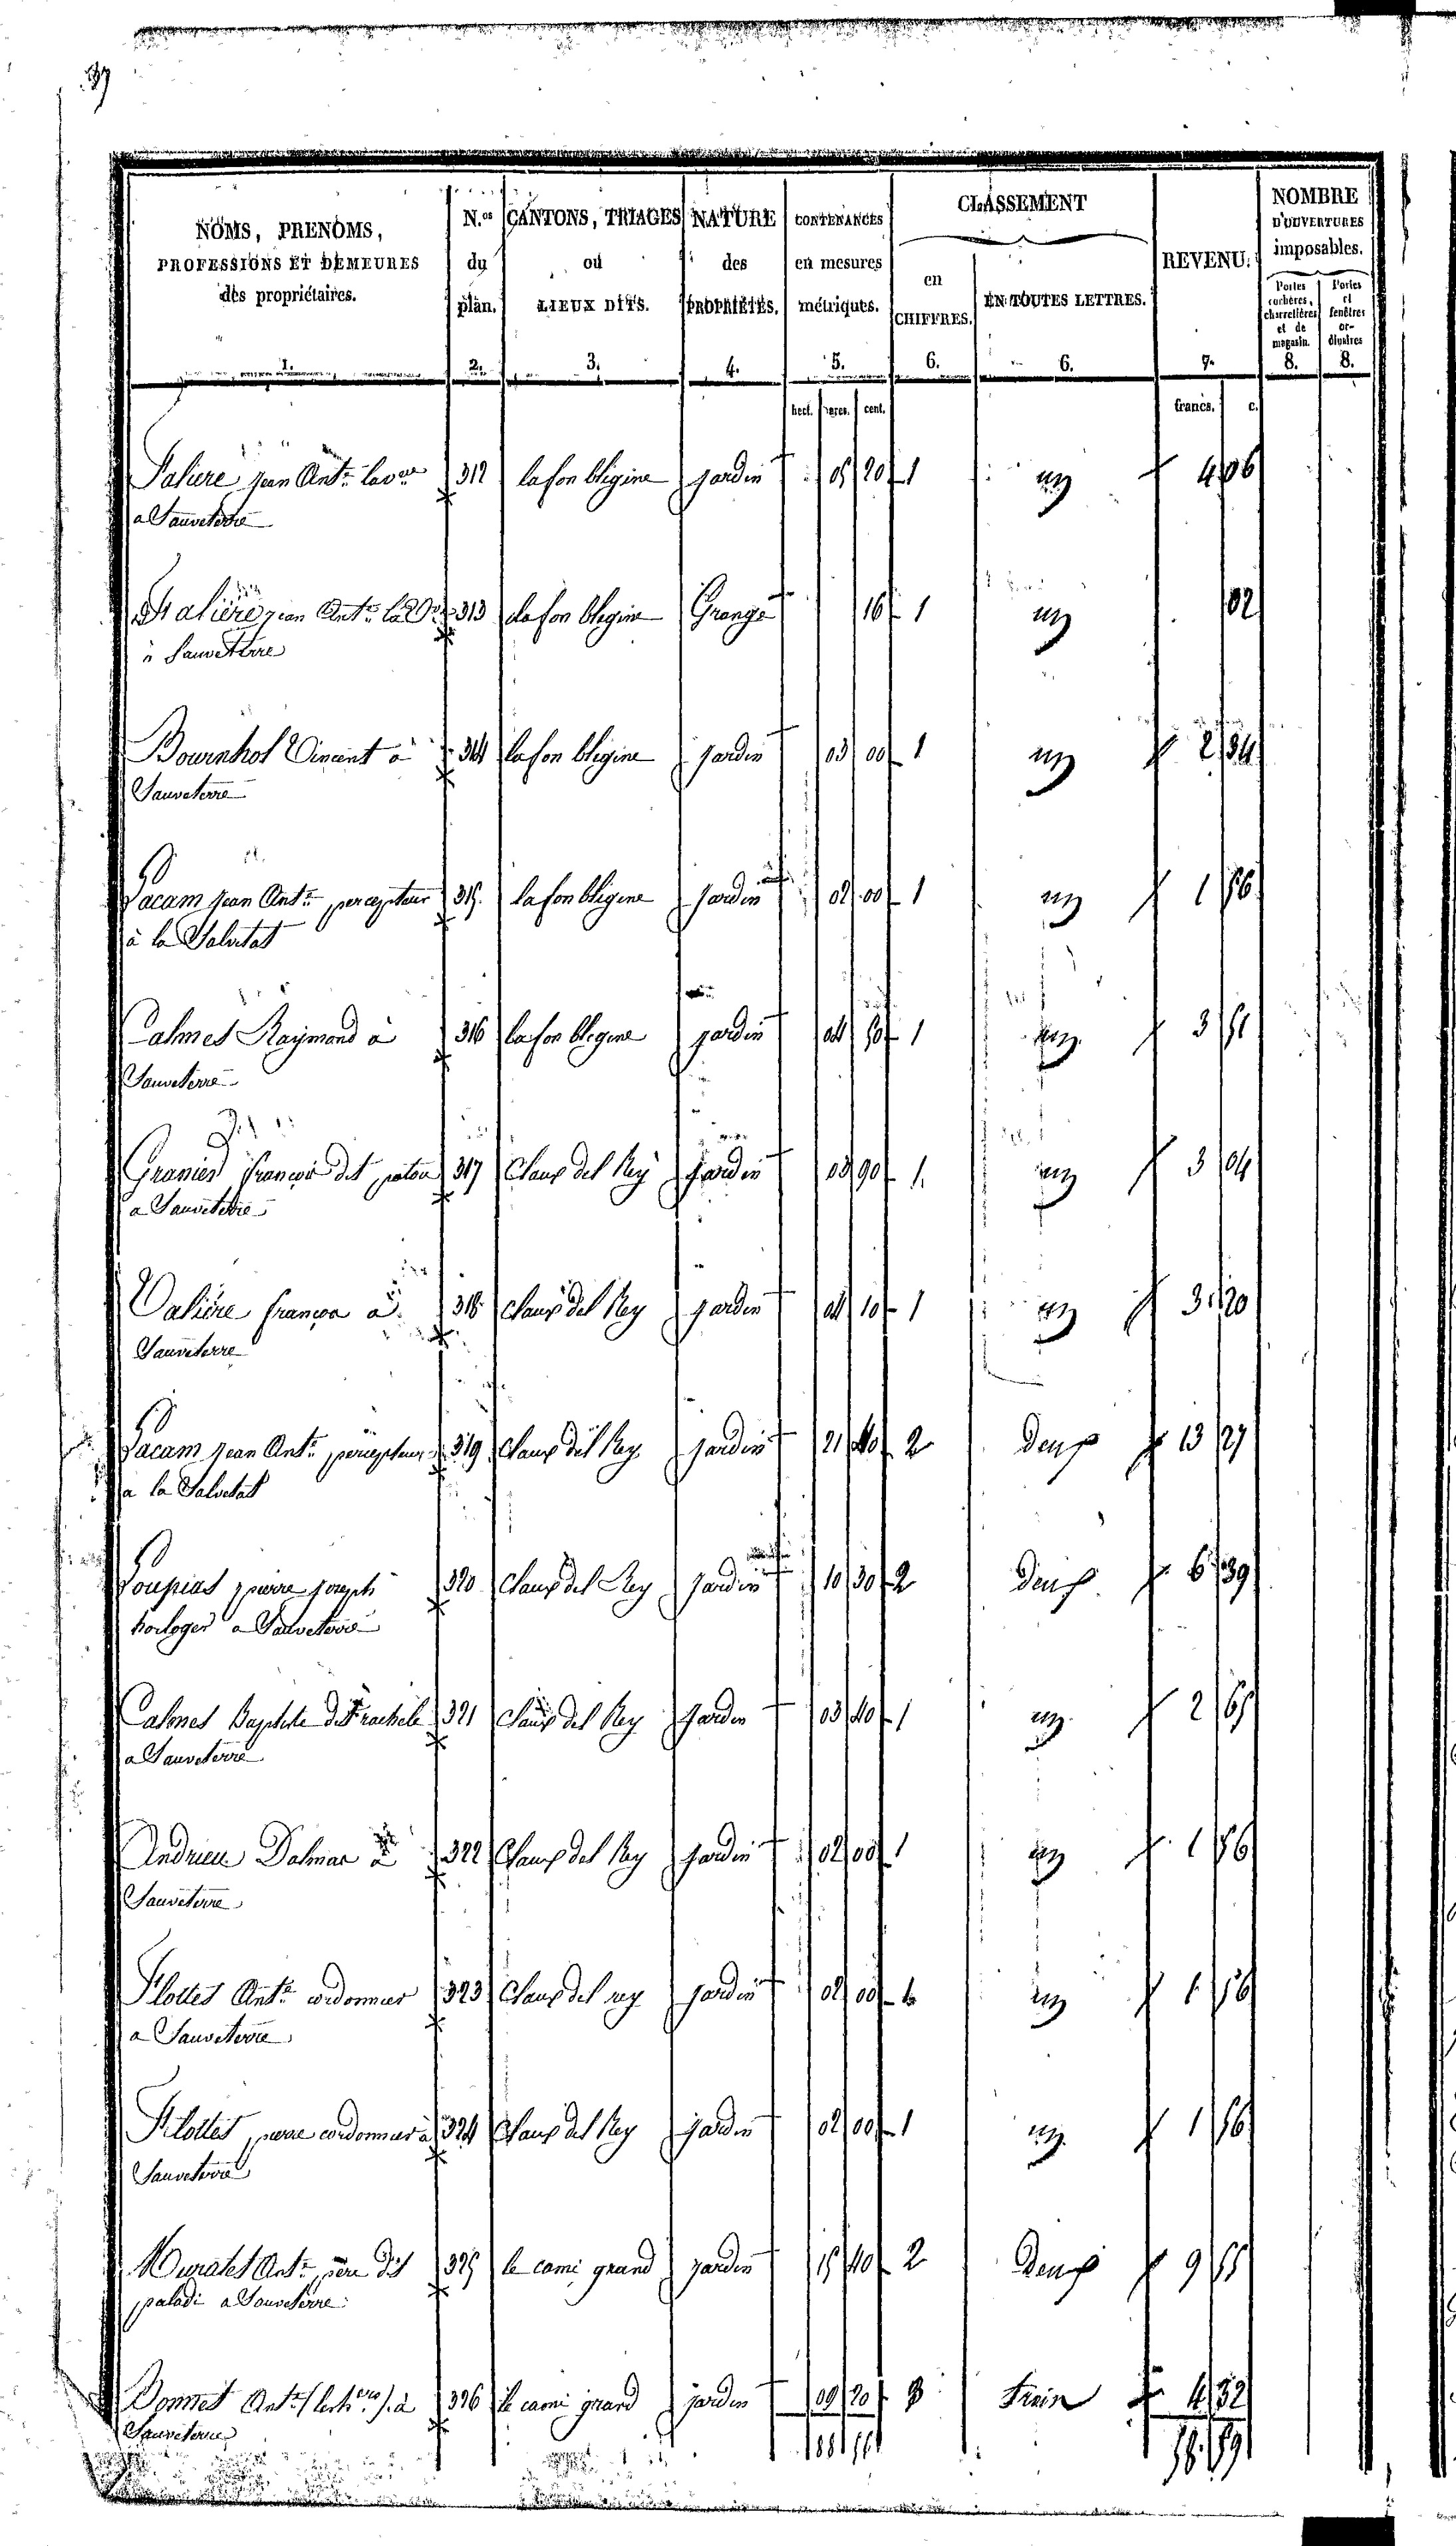 37
NOMS, PRENOMS,
PROFESSIONS ET DEMEURES
des propriétaires.
1.
N.os
du
plan.
2.
CANTONS, TRIAGES
ou
LIEUX DITS.
3.
NATURE
des
PROPRIÉTÉS.
4.
CONTENANCES
en mesures
métriques.
5.
CLASSEMENT
en
CHIFFRES.
6.
EN TOUTES LETTRES.
6.
REVENU.
7.
NOMBRE
D'OUVERTURES
imposables.
Portes cochères, charretières et de magasin.
8.
Portes et fenêtres ordinaires
8.
hect. ares. cent. francs. c.
jean Ant.e 312 lafon blegine jardin 05 20 1 un 4 06
a Sauveterre
jean Ant.e 313 lafon blegine Grange 16 1 un 02
à Sauveterre
Bournhol Vincent à 314 lafon blegine jardin 03 00 1 un 2 34
Sauveterre
Pacam jean Ant.e percepteur 315 lafon blegine jardin 02 00 1 un 1 56
à la Salvetat
Calmes Raymond à 316 lafon blegine jardin 04 50 1 un 3 51
Sauveterre
Granier françois dit patou 317 Claux del Rey jardin 03 90 1 un 3 04
a Sauveterre
Valière françois à 318 Claux del Rey jardin 04 10 1 un 3 20
Sauveterre
Pacam jean Ant.e percepteur 319 Claux del Rey jardin 21 40 2 Deux 13 27
a la Salvetat
Loupias pierre joseph 320 Claux del Rey jardin 10 30 2 Deux 6 39
horloger a Sauveterre
Calmes Baptiste dit 321 Claux del Rey jardin 03 40 1 un 2 65
a Sauveterre
Andrieu Dalmas à 322 Claux del Rey jardin 02 00 1 un 1 56
Sauveterre
Flottes Ant.e cordonnier 323 Claux del rey jardin 02 00 1 un 1 56
a Sauveterre
Flottes pierre cordonnier à 324 Claux del Rey jardin 02 00 1 un 1 56
Sauveterre
Muratet Ant.e père dit 325 le cami grand jardin 15 40 2 Deux 9 55
paladi a Sauveterre
Bonnet Ant.e (les h.ers) à 326 le cami grand jardin 09 20 3 Trois 4 32
Sauveterre
88 56 58 59